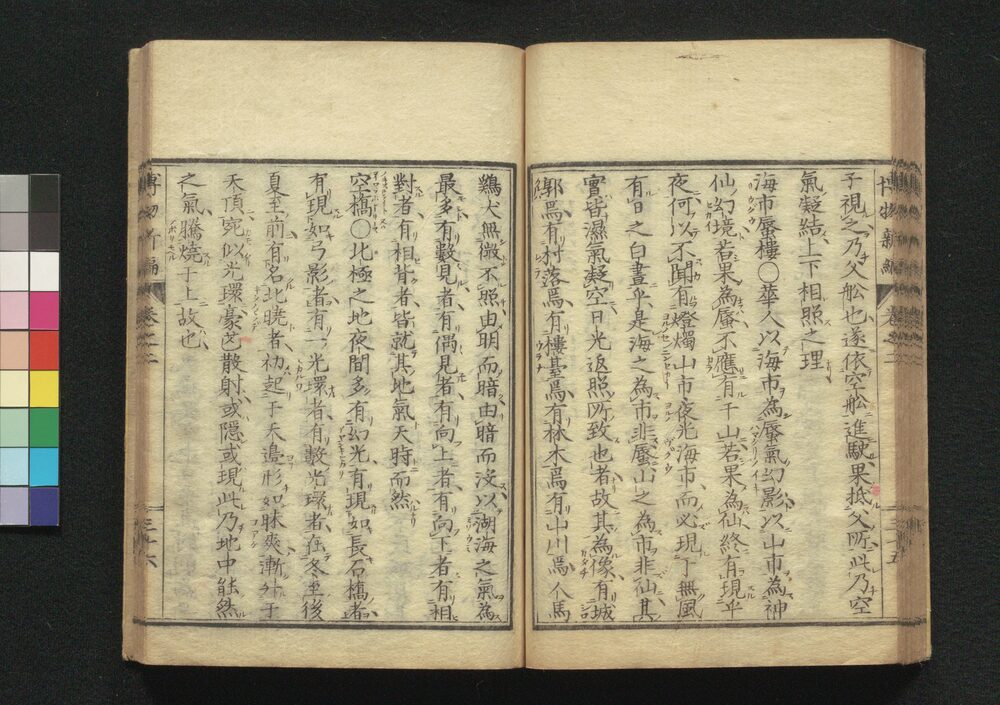 博物新編
卷之二
三十五
子視之乃父舩也遂依空舩進駛果抵父所此乃空
氣凝結上下相照之理
海市蜃樓〇華人以海市為蜃氣幻影以山市為神
仙幻境若果為蜃不應有于山若果為仙終有現乎
夜何以不聞有燈燭山市夜光海市而必現于無風
有日之白晝乎是海之為市非蜃山之為市非仙其
實皆濕氣凝空日光返照所致也者故其為像有城
郭焉有村落焉有樓臺焉有林木焉有山川焉人馬
鷄犬無微不照由明而暗由暗而沒以湖海之氣為
最多有數見者有偶見者有向上者有向下者有相
對者有相背者皆就其地氣天時而然
空橋〇北極之地夜間多有幻光有現如長石橋者
有現如弓影者有一光環者有數光環者在冬至後
夏至前有名北曉者初起于天邊形如昧爽漸升于
天頂宛似光環豪芒散射或隱或現此乃地中能然
之氣騰燒于上故也
博物新編
卷之二
三十六